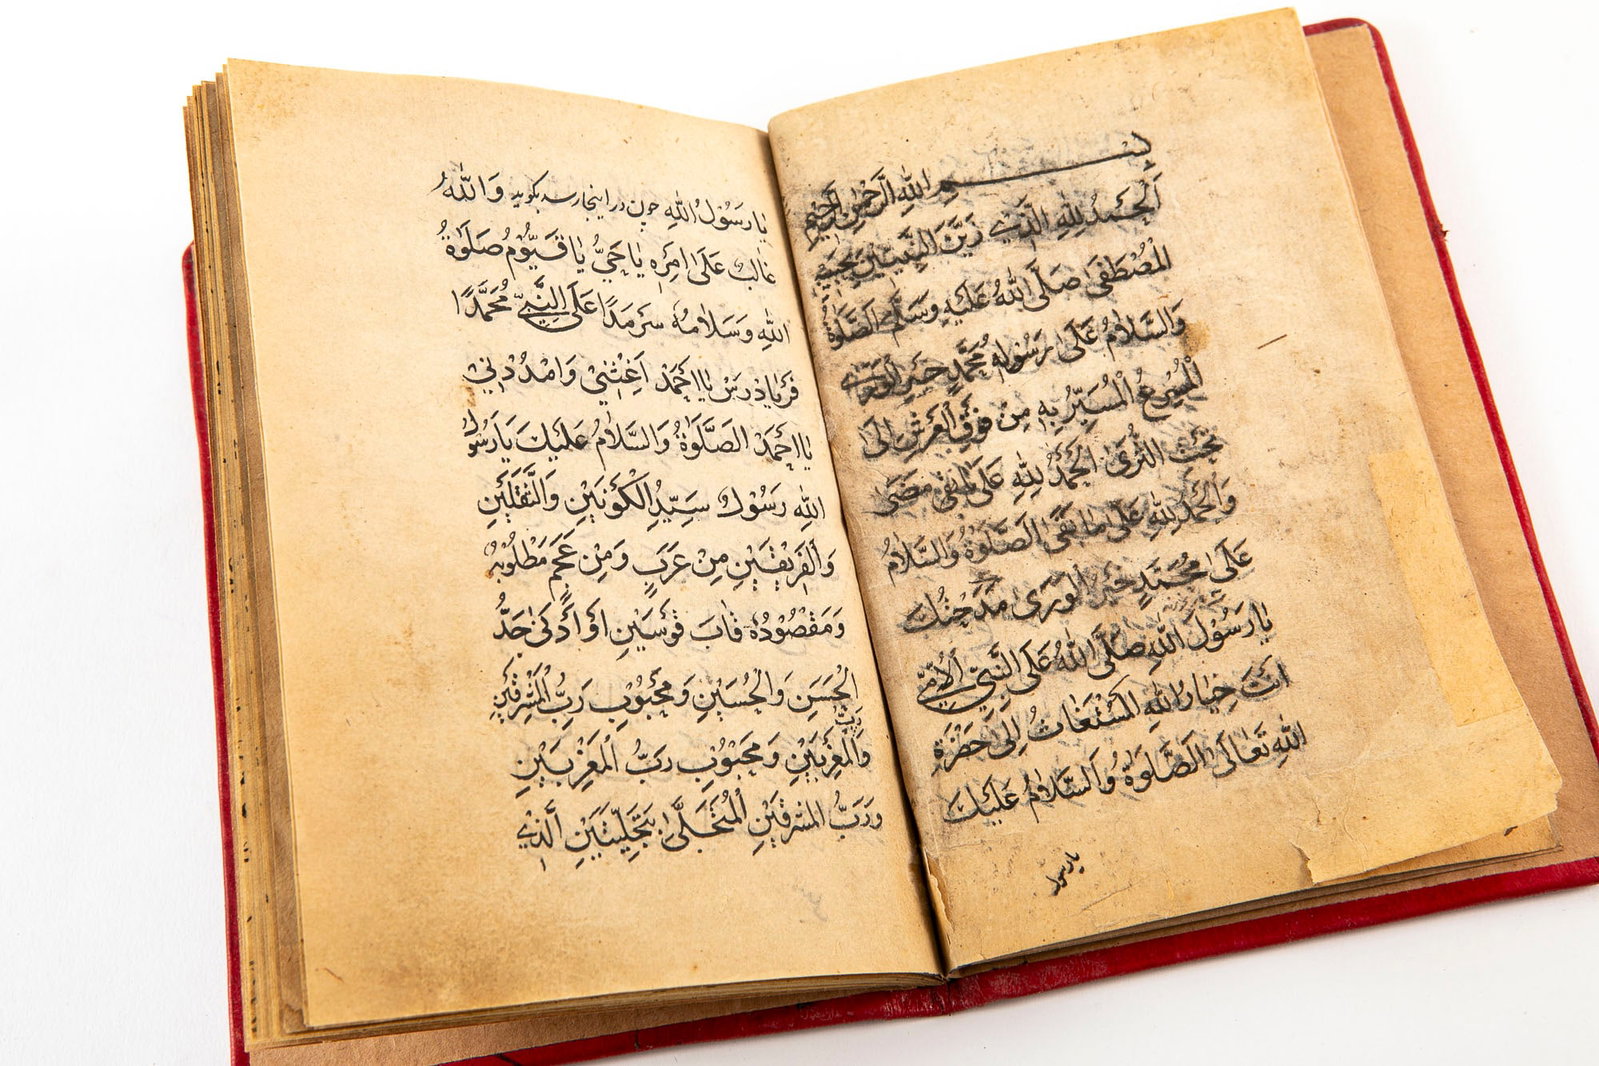 بسم الله الرحمن الرحيم
اَلْحَمْدُ لِلّٰهِ الَّذِي زَيَّنَ النَّبِيّينَ بحبيبه
الْمُصْطَفٰى صَلَّى اللّٰهُ عَلَيْهِ وَسَلَّمَ اَلصَّلٰوةُ
وَالسَّلَامُ عَلٰى رَسُولِهِ مُحَمَّدٍ خَيْرِ الْوَرٰى
بِهِ مِنْ فَوْقِ الْعَرْشِ اِلٰى
تَحْتَ الثَّرٰى اَلْحَمْدُ لِلّٰهِ عَلٰى مَضٰى
وَالْحَمْدُ لِلّٰهِ عَلٰى مَا بَقٰى اَلصَّلٰوةُ وَالسَّلَامُ
عَلٰى مُحَمَّدٍ خَيْرِ الْوَرٰى مَدَحْتُكَ
يَا رَسُوْلَ اللّٰهِ صَلَّى اللّٰهُ عَلَى النَّبِيِّ الْاُمِّيِّ
اَنْتَ خِيَارُ اللّٰهِ الْمُسْتَغَاثُ اِلٰى حَضْرَةِ
اللّٰهِ تَعَالٰى اَلصَّلٰوةُ وَالسَّلَامُ عَلَيْكَ
يا رسول
يَا رَسُوْلَ اللّٰهِ چون در اینجا رسد بگوید وَاللّٰهُ
غَالِبٌ عَلٰى اَمْرِهِ يَا حَيُّ يَا قَيُّوْمُ صَلٰوةُ
اللّٰهِ وَسَلَامُهُ سَرْمَدًا عَلَى النَّبِيِّ مُحَمَّدًا
فَرْيَاذْرَسْ يَا اَحْمَدْ اَغِثْنِيْ وَامْدُدْنِيْ
يَا اَحْمَدْ اَلصَّلٰوةُ وَالسَّلَامُ عَلَيْكَ يَا رَسُوْلَ
اللّٰهِ رَسُوْلُ سَيِّدِ الْكَوْنَيْنِ وَالثَّقَلَيْنِ
وَالْفَرِيْقَيْنِ مِنْ عَرَبٍ وَمِنْ عَجَمٍ مَطْلُوْبُهُ
وَمَقْصُوْدُهُ قَابَ قَوْسَيْنِ اَوْ اَدْنٰى جَدُّ
الْحَسَنِ وَالْحُسَيْنِ وَمَحْبُوْبِ رَبِّ الْمَشْرِقَيْنِ
وَالْمَغْرِبَيْنِ وَمَحْبُوْبِ رَبُّ الْمَغْرِبَيْنِ
رَبُّ
وَرَبُّ الْمَشْرِقَيْنِ الْمُتَجَلّٰى الَّذِيْ